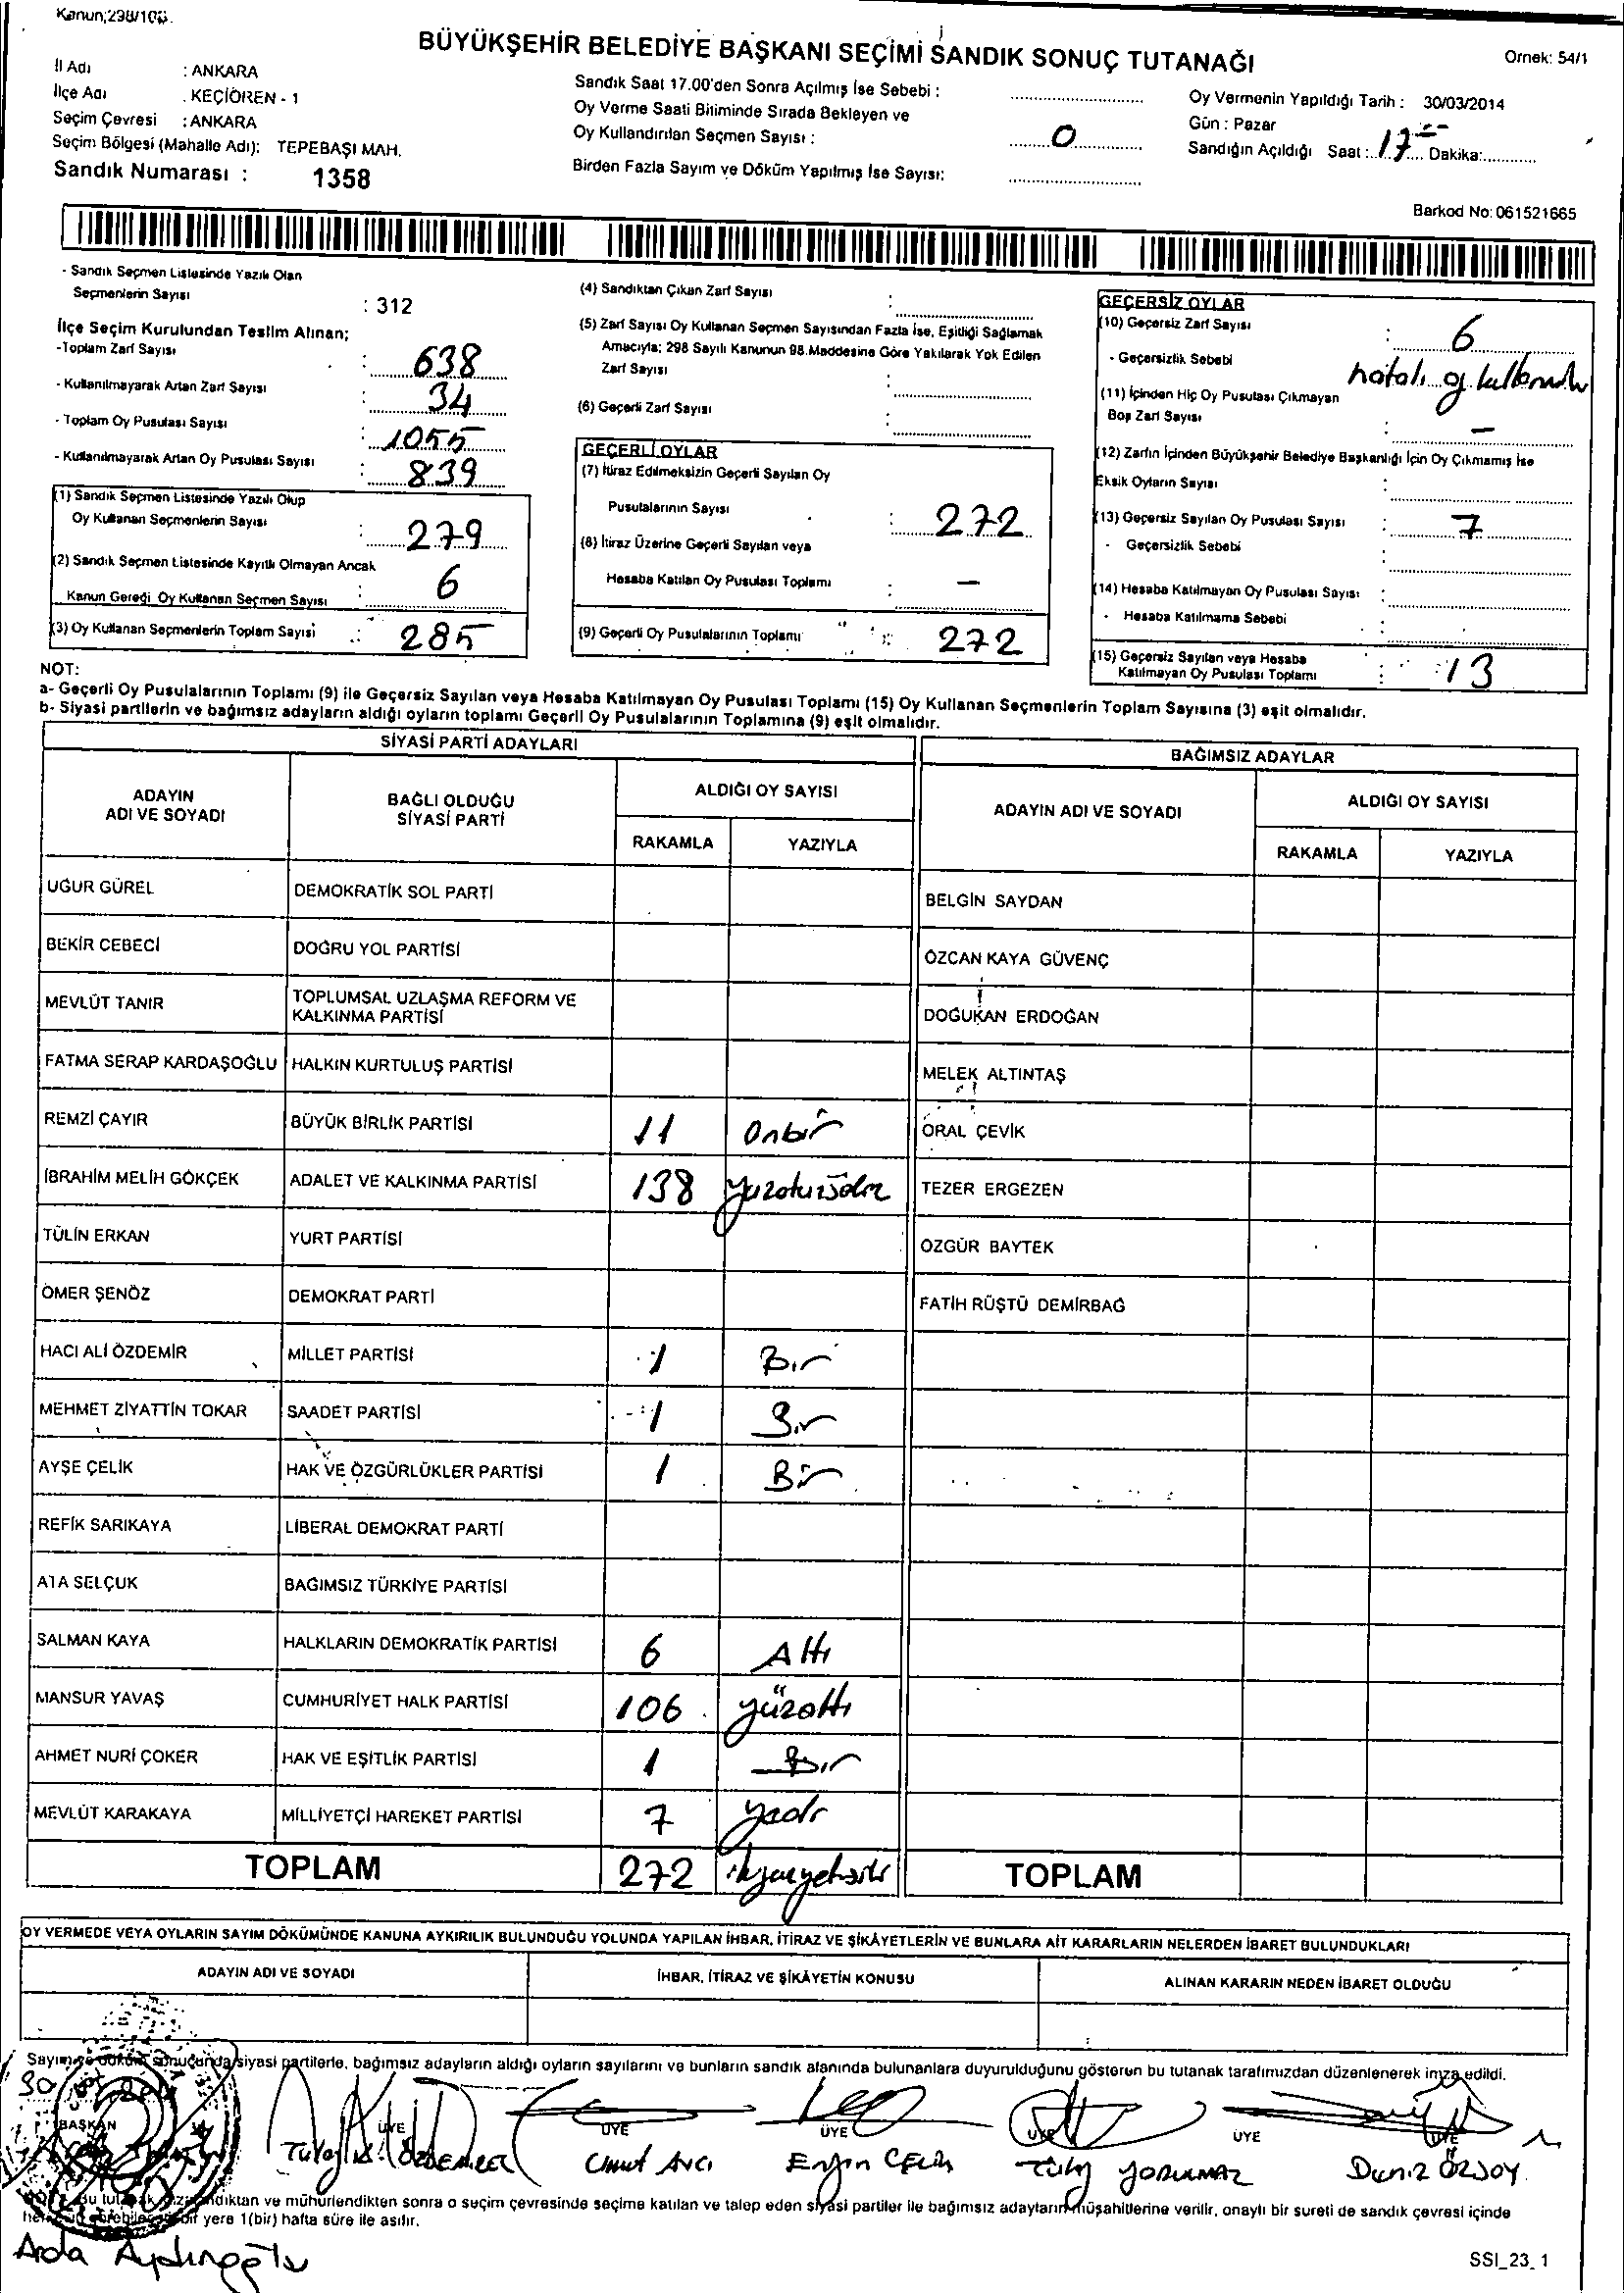 Kanun;298/105.
BÜYÜKŞEHİR BELEDİYE BAŞKANI SEÇİMİ SANDIK SONUÇ TUTANAĞI
Örnek: 54/1
İl Adı : ANKARA
İlçe Adı : KEÇİÖREN - 1
Seçim Çevresi : ANKARA
Seçim Bölgesi (Mahalle Adı): TEPEBAŞI MAH.
Sandık Numarası : 1358
Sandık Saat 17.00'den Sonra Açılmış İse Sebebi :
Oy Verme Saati Bitiminde Sırada Bekleyen ve
Oy Kullandırılan Seçmen Sayısı : 0
Birden Fazla Sayım ve Döküm Yapılmış İse Sayısı:
Oy Vermenin Yapıldığı Tarih : 30/03/2014
Gün : Pazar
Sandığın Açıldığı Saat : 17 Dakika:
Barkod No: 061521665
- Sandık Seçmen Listesinde Yazılı Olan
Seçmenlerin Sayısı : 312
İlçe Seçim Kurulundan Teslim Alınan;
-Toplam Zarf Sayısı : 638
- Kullanılmayarak Artan Zarf Sayısı : 34
- Toplam Oy Pusulası Sayısı : 1055
- Kullanılmayarak Artan Oy Pusulası Sayısı : 839
(1) Sandık Seçmen Listesinde Yazılı Olup
Oy Kullanan Seçmenlerin Sayısı : 279
(2) Sandık Seçmen Listesinde Kayıtlı Olmayan Ancak
Kanun Gereği Oy Kullanan Seçmen Sayısı : 6
(3) Oy Kullanan Seçmenlerin Toplam Sayısı : 285
(4) Sandıktan Çıkan Zarf Sayısı :
(5) Zarf Sayısı Oy Kullanan Seçmen Sayısından Fazla İse, Eşitliği Sağlamak
Amacıyla; 298 Sayılı Kanunun 98.Maddesine Göre Yakılarak Yok Edilen
Zarf Sayısı :
(6) Geçerli Zarf Sayısı :
GEÇERLİ OYLAR
(7) İtiraz Edilmeksizin Geçerli Sayılan Oy
Pusulalarının Sayısı : 272
(8) İtiraz Üzerine Geçerli Sayılan veya
Hesaba Katılan Oy Pusulası Toplamı : -
(9) Geçerli Oy Pusulalarının Toplamı : 272
GEÇERSİZ OYLAR
(10) Geçersiz Zarf Sayısı : 6
- Geçersizlik Sebebi hatalı oy
(11) İçinden Hiç Oy Pusulası Çıkmayan
Boş Zarf Sayısı : -
(12) Zarfın İçinden Büyükşehir Belediye Başkanlığı İçin Oy Çıkmamış İse
Eksik Oyların Sayısı :
(13) Geçersiz Sayılan Oy Pusulası Sayısı : 7
- Geçersizlik Sebebi :
(14) Hesaba Katılmayan Oy Pusulası Sayısı :
- Hesaba Katılmama Sebebi :
(15) Geçersiz Sayılan veya Hesaba
Katılmayan Oy Pusulası Toplamı : 13
NOT:
a- Geçerli Oy Pusulalarının Toplamı (9) ile Geçersiz Sayılan veya Hesaba Katılmayan Oy Pusulası Toplamı (15) Oy Kullanan Seçmenlerin Toplam Sayısına (3) eşit olmalıdır.
b- Siyasi partilerin ve bağımsız adayların aldığı oyların toplamı Geçerli Oy Pusulalarının Toplamına (9) eşit olmalıdır.
SİYASİ PARTİ ADAYLARI
BAĞIMSIZ ADAYLAR
ADAYIN ADI VE SOYADI
BAĞLI OLDUĞU SİYASİ PARTİ
ALDIĞI OY SAYISI
RAKAMLA YAZIYLA
ADAYIN ADI VE SOYADI
ALDIĞI OY SAYISI
RAKAMLA YAZIYLA
UĞUR GÜREL DEMOKRATİK SOL PARTİ BELGİN SAYDAN
BEKİR CEBECİ DOĞRU YOL PARTİSİ ÖZCAN KAYA GÜVENÇ
MEVLÜT TANIR TOPLUMSAL UZLAŞMA REFORM VE KALKINMA PARTİSİ DOĞUKAN ERDOĞAN
FATMA SERAP KARDAŞOĞLU HALKIN KURTULUŞ PARTİSİ MELEK ALTINTAŞ
REMZİ ÇAYIR BÜYÜK BİRLİK PARTİSİ 11 Onbir ORAL ÇEVİK
İBRAHİM MELİH GÖKÇEK ADALET VE KALKINMA PARTİSİ 138 yüzotuzsekiz TEZER ERGEZEN
TÜLİN ERKAN YURT PARTİSİ ÖZGÜR BAYTEK
ÖMER ŞENÖZ DEMOKRAT PARTİ FATİH RÜŞTÜ DEMİRBAĞ
HACI ALİ ÖZDEMİR MİLLET PARTİSİ 1 Bir
MEHMET ZİYATTİN TOKAR SAADET PARTİSİ 1 Bir
AYŞE ÇELİK HAK VE ÖZGÜRLÜKLER PARTİSİ 1 Bir
REFİK SARIKAYA LİBERAL DEMOKRAT PARTİ
ATA SELÇUK BAĞIMSIZ TÜRKİYE PARTİSİ
SALMAN KAYA HALKLARIN DEMOKRATİK PARTİSİ 6 Altı
MANSUR YAVAŞ CUMHURİYET HALK PARTİSİ 106 yüzaltı
AHMET NURİ ÇOKER HAK VE EŞİTLİK PARTİSİ 1 Bir
MEVLÜT KARAKAYA MİLLİYETÇİ HAREKET PARTİSİ 7 yedi
TOPLAM 272 ikiyüzyetmişiki TOPLAM
OY VERMEDE VEYA OYLARIN SAYIM DÖKÜMÜNDE KANUNA AYKIRILIK BULUNDUĞU YOLUNDA YAPILAN İHBAR, İTİRAZ VE ŞİKÂYETLERİN VE BUNLARA AİT KARARLARIN NELERDEN İBARET BULUNDUKLARI
ADAYIN ADI VE SOYADI İHBAR, İTİRAZ VE ŞİKÂYETİN KONUSU ALINAN KARARIN NEDEN İBARET OLDUĞU
Sayım ve döküm sonucunda siyasi partilerle, bağımsız adayların aldığı oyların sayılarını ve bunların sandık alanında bulunanlara duyurulduğunu gösteren bu tutanak tarafımızdan düzenlenerek imza edildi.
30
BAŞKAN ÜYE ÜYE ÜYE ÜYE ÜYE ÜYE
ÖZDEMİR Umut AVCI Engin ÇELİK Tülay YORULMAZ Deniz ÖZSOY
Bu tutanak imzalandıktan ve mühürlendikten sonra o seçim çevresinde seçime katılan ve talep eden siyasi partiler ile bağımsız adayların müşahitlerine verilir, onaylı bir sureti de sandık çevresi içinde
herkesin görebileceği bir yere 1(bir) hafta süre ile asılır.
Arda Aydınoğlu
SSI_23_1